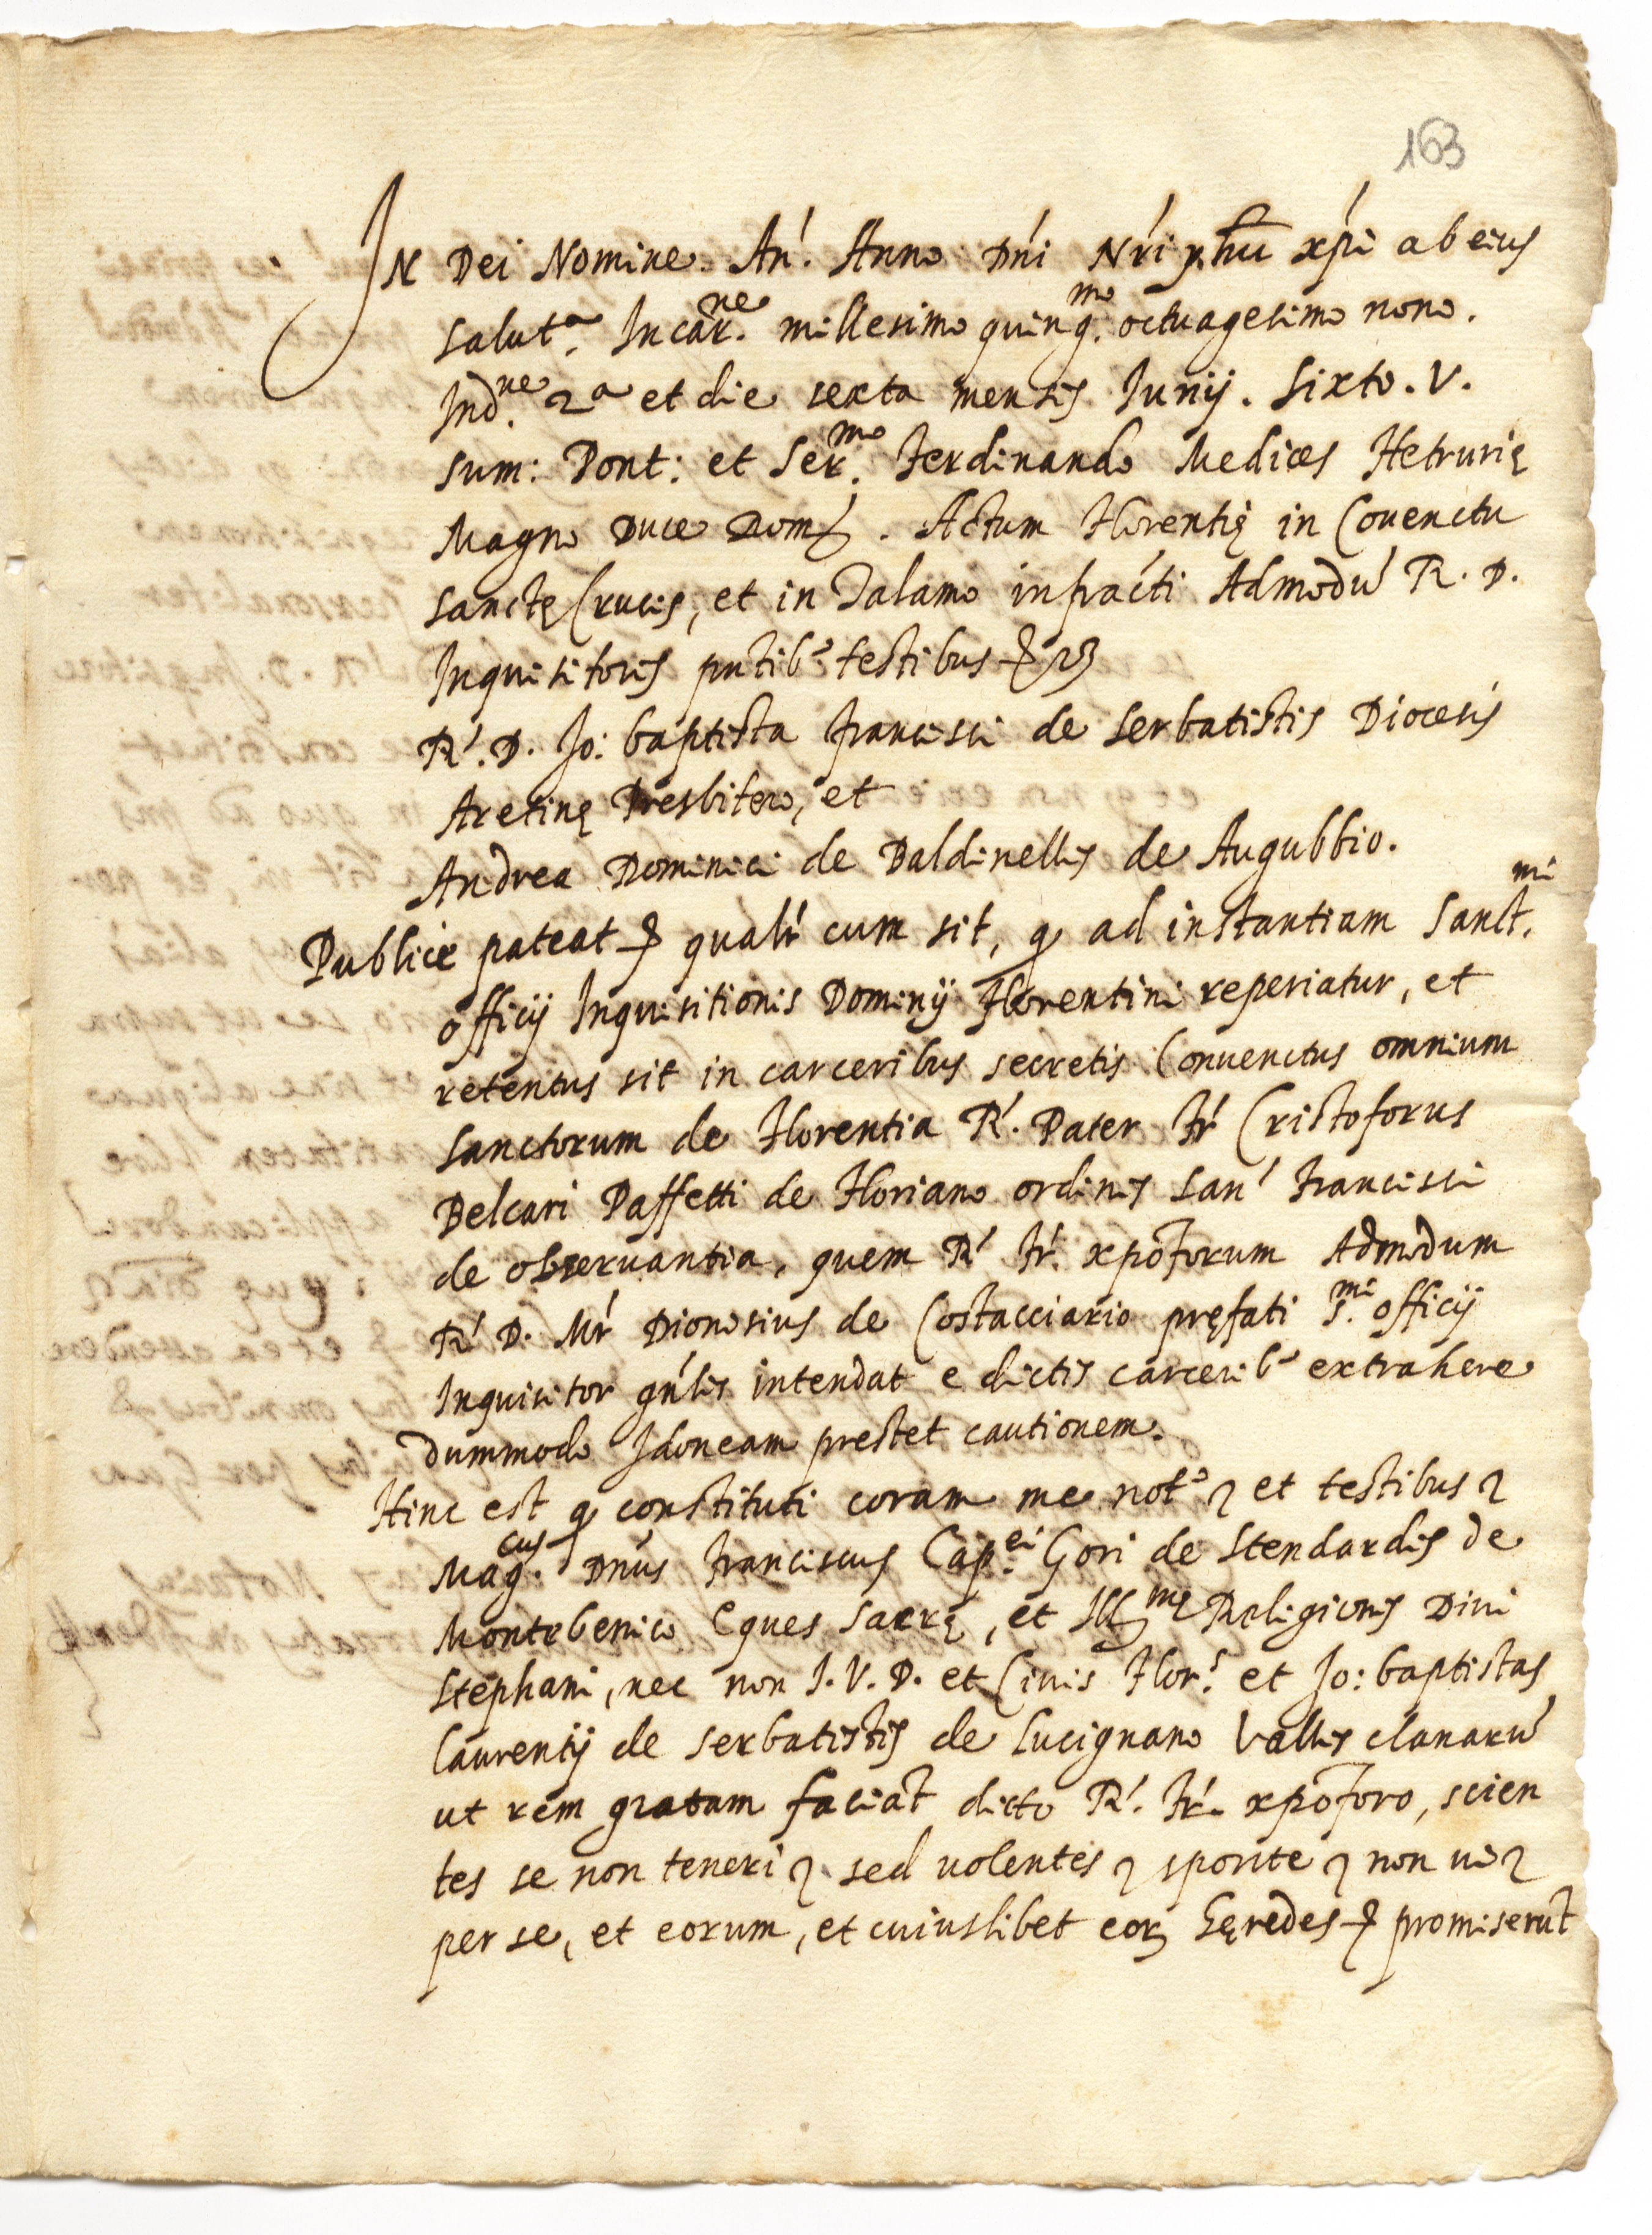 163
IN Dei Nomine. An̄. Anno Dn̄i Nr̄i yhū xp̄i ab eius
salut.ᵃ Incar.ⁿᵉ millesimo quing.ᵐᵒ octuagesimo nono.
Ind.ⁿᵉ 2ᵃ et die sexta mensis Iunij. Sixto. V.
sum: Pont: et Ser.ᵐᵒ Ferdinando Medices Hetrurię
Magno Duce Dom. Actum Florentię in Covenctu
sanctę Crucis, et in Talamo infrac̄ti Admodū R. D.
Inquisitoris pn̄tib.ˢ testibus
R̄. D. Jo: baptista francisci de serbatistis Diocesis
Aretinę Presbitero, et
Andrea Dominici de Baldinellis de Augubbio.
Publice pateat qualr̄ cum sit, q ad instantiam Sanct.ᵐⁱ
officij Inquisitionis Dominij Florentini reperiatur, et
retentus sit in carceribus secretis Convenctus omnium
sanctorum de Florentia R̄. Pater Fr̄ Cristoforus
Belcari Paffetti de Floriano ordinis San̄ Francisci
de observantia, quem R̄ Fr̄. xpōforum Admodum
R̄ D. Mr̄ Dionosius de Costacciario pręfati S.ᵐⁱ officij
Inquisitor gn̄lis intendat e dictis carcerib.ˢ extrahere
dummodo Idoneam prestet cautionem.
Hinc est q constituti coram me not.ᵒ et testibus
Mag.ᶜᵘˢ Dn̄us Franciscus Cap.ᵉⁱ Gori de Stendardis de
Montebenico Eques Sacrę, et Ill.ᵐę Religionis Divi
Stephani, nec non J. V. D. et Civis Flor.ˢ et Jo: baptistas
Laurentij de serbatistis de Lucignano Vallis clanarū
ut rem gratam faciāt dicto R̄. Fr̄. xpōforo, scien
tes se non teneri sed uolentes sponte non ui
per se, et eorum, et cuiuslibet eor hęredes promiserūt